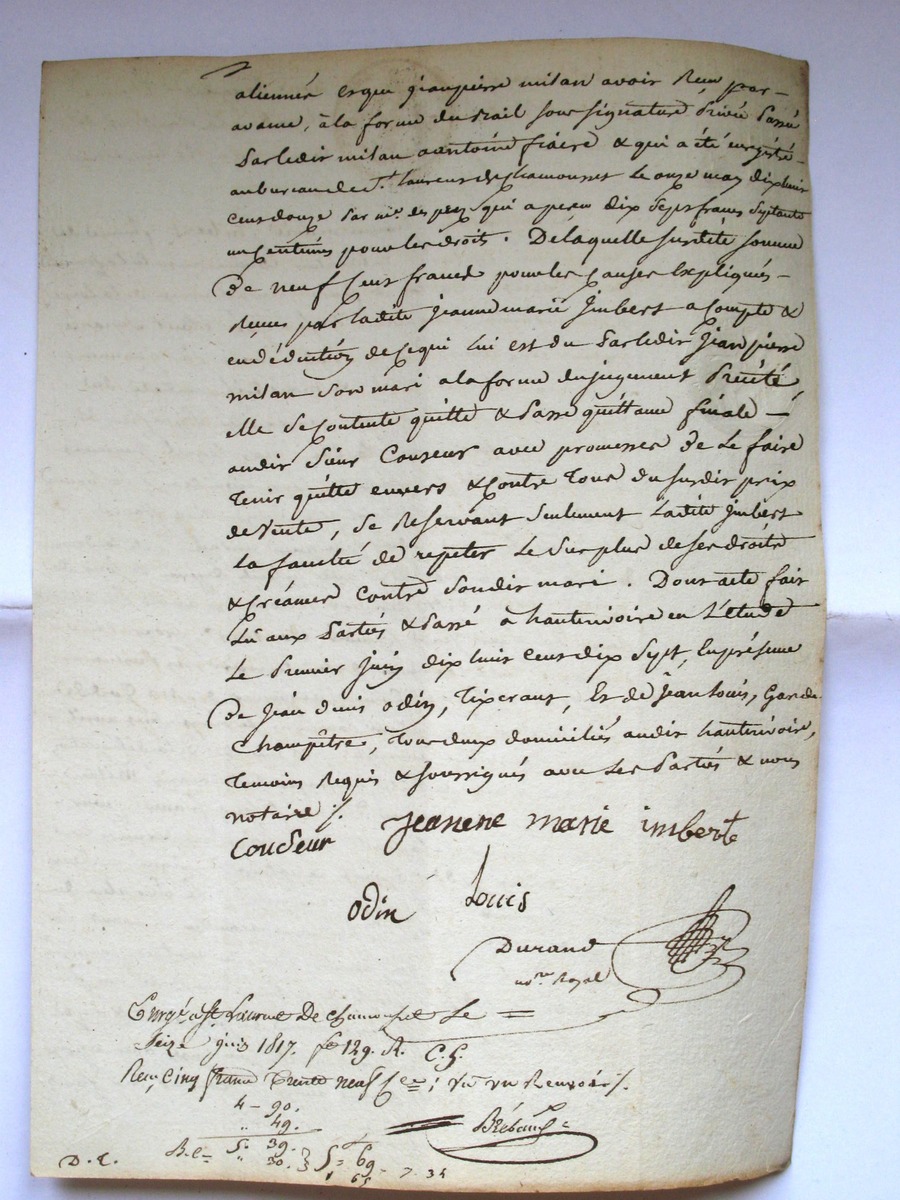 aliennés et que jeanpierre milan avoir Reçu par—
avance, à la forme du Bail sous signature Privée Passée
Par ledit milan a antoine fiaire & qui a été enrégistré—
au bureau de St laurent de chamousset le onze may dix huit
cent douze par mr. de pey qui a perçu dix sept francs soixante
un Centimes pour les droits. De laquelle susdite somme
De neuf Cent francs pour les Causes Expliqués—
Reçues par ladite jeanne marie Jmbert a Compte &
en déduction de Ce qui lui est du Par ledit Jean pierre
milan Son mari a la forme du jugement Précité
elle Se Contente quitte & Passe quittance finale—
audit Sieur Couseur avec promesses De Le faire
Tenir quitte envers & Contre Tous du susdit prix
de Vente, Se Reservant Seulement Ladite Jmbert
La faculté de repeter Le Surplus de ses droits
& Créances Contre Son dit mari. Dont acte fait
Lu aux Parties & Passé a hauterivoire en L'étude
Le Premier Juin dix huit Cent dix Sept, En présence
De Jean denis odin, Tixerant, Et de Jean Louis, Garde
Champêtre, Tous deux domiciliés audit hauterivoire,
Temoins Requis & soussignés avec Les Parties & nous
notaire ./.
Couseur Jeanene marie imbert
odin Louis
Durand
nore Royal
Enregé a St Laurent De chamousset Le =
Seize juin 1817. fo 129. R. C. 5.
Reçu Cinq francs Trente neuf Ces; vu un Renvoi ./.
4 – 90.
" 49.
5. 39.
" 30. } 5 = 69
1 65 – 7. 34
D. E.